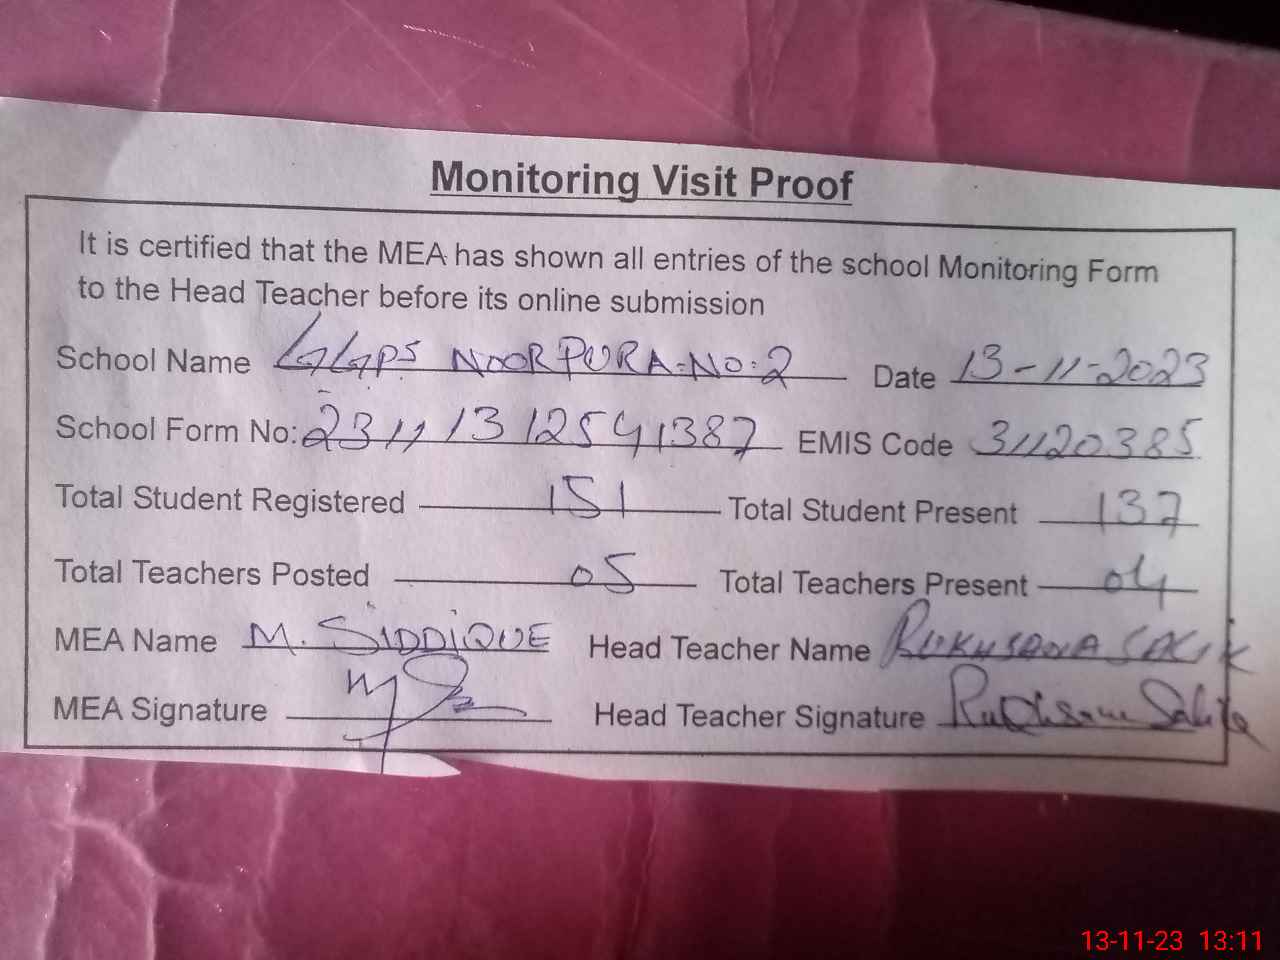 Monitoring Visit Proof
It is certified that the MEA has shown all entries of the school Monitoring Form
to the Head Teacher before its online submission
School Name GGPS NOORPURA.NO:2 Date 13-11-2023
School Form No: 231113125941387 EMIS Code 31120385
Total Student Registered 151 Total Student Present 137
Total Teachers Posted 05 Total Teachers Present 04
MEA Name M. SIDDIQUE Head Teacher Name RUKHSANA
MEA Signature Head Teacher Signature
13-11-23 13:11